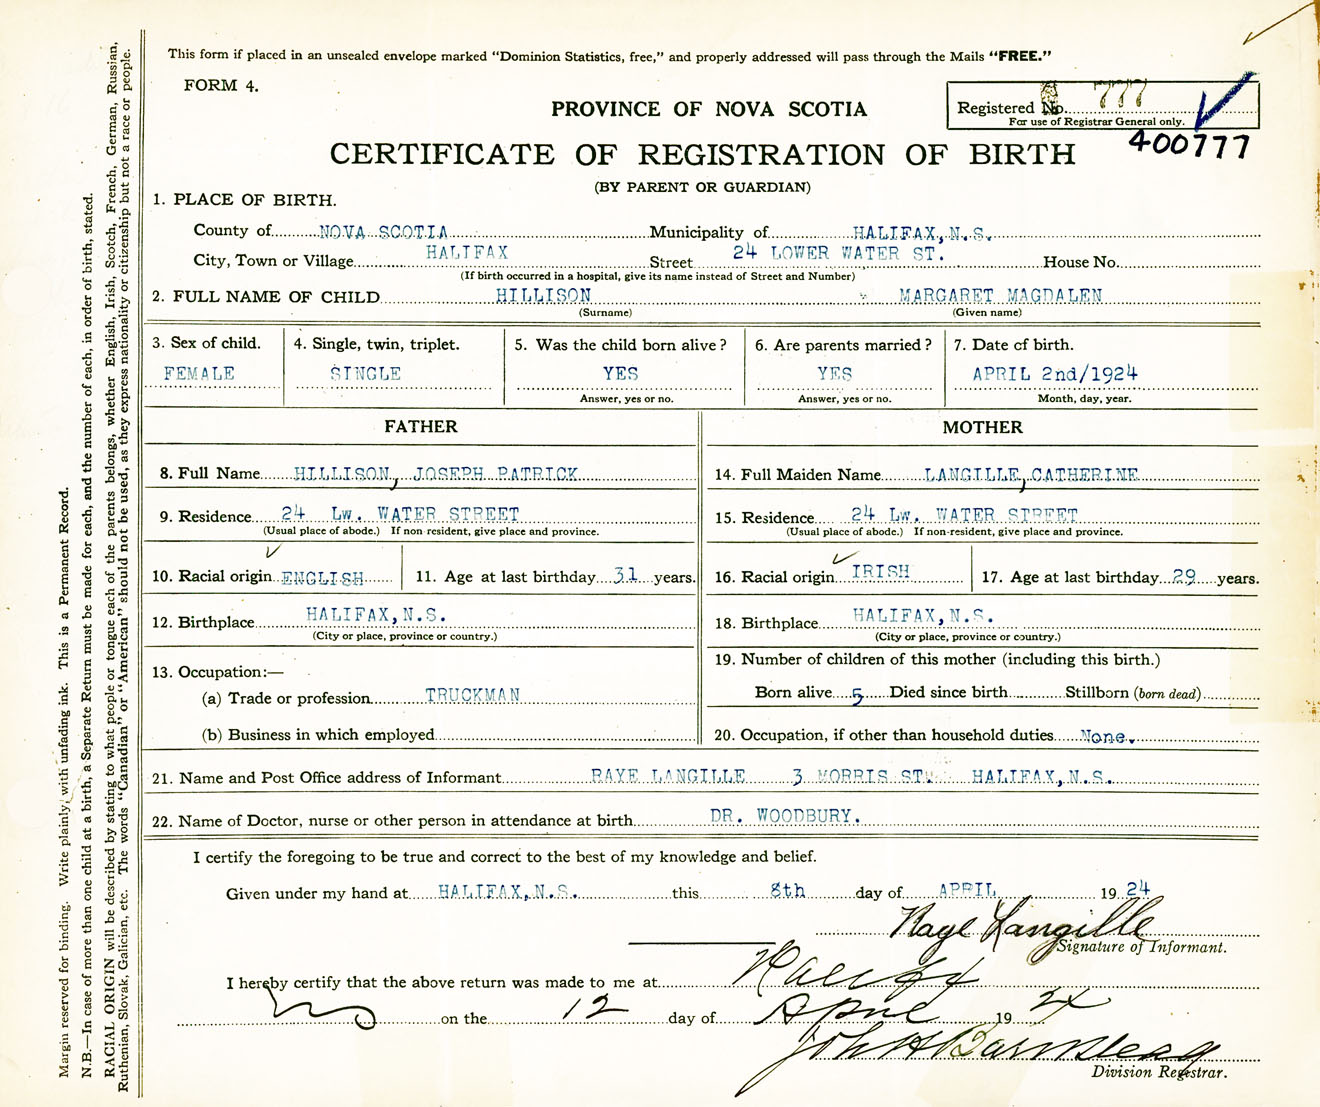 This form if placed in an unsealed envelope marked “Dominion Statistics, free,” and properly addressed will pass through the Mails “FREE.”
FORM 4.
PROVINCE OF NOVA SCOTIA
Registered No. 777
For use of Registrar General only.
400777
CERTIFICATE OF REGISTRATION OF BIRTH
(BY PARENT OR GUARDIAN)
1. PLACE OF BIRTH.
County of NOVA SCOTIA Municipality of HALIFAX, N.S.
City, Town or Village HALIFAX Street 24 LOWER WATER ST. House No.
(If birth occurred in a hospital, give its name instead of Street and Number)
2. FULL NAME OF CHILD HILLISON MARGARET MAGDALEN
(Surname) (Given name)
3. Sex of child. 4. Single, twin, triplet. 5. Was the child born alive? 6. Are parents married? 7. Date of birth.
FEMALE SINGLE YES YES APRIL 2nd/1924
Answer, yes or no. Answer, yes or no. Month, day, year.
FATHER MOTHER
8. Full Name HILLISON, JOSEPH PATRICK 14. Full Maiden Name LANGILLE, CATHERINE
9. Residence 24 Lw. WATER STREET 15. Residence 24 Lw. WATER STREET
(Usual place of abode.) If non-resident, give place and province. (Usual place of abode.) If non-resident, give place and province.
10. Racial origin ENGLISH 11. Age at last birthday 31 years. 16. Racial origin IRISH 17. Age at last birthday 29 years.
12. Birthplace HALIFAX, N.S. 18. Birthplace HALIFAX, N.S.
(City or place, province or country.) (City or place, province or country.)
13. Occupation:— 19. Number of children of this mother (including this birth.)
(a) Trade or profession TRUCKMAN Born alive 5 Died since birth Stillborn (born dead)
(b) Business in which employed 20. Occupation, if other than household duties None.
21. Name and Post Office address of Informant RAYE LANGILLE 3 MORRIS ST. HALIFAX, N.S.
22. Name of Doctor, nurse or other person in attendance at birth DR. WOODBURY.
I certify the foregoing to be true and correct to the best of my knowledge and belief.
Given under my hand at HALIFAX, N.S. this 8th day of APRIL 1924
Raye Langille
Signature of Informant.
I hereby certify that the above return was made to me at Halifax
NS on the 12 day of April 1924
John A Barnstead
Division Registrar.
Margin reserved for binding. Write plainly with unfading ink. This is a Permanent Record.
N.B.—In case of more than one child at a birth, a Separate Return must be made for each, and the number of each, in order of birth, stated.
RACIAL ORIGIN will be described by stating to what people or tongue each of the parents belongs, whether English, Irish, Scotch, French, German, Russian,
Ruthenian, Slovak, Galician, etc. The words “Canadian” or “American” should not be used, as they express nationality or citizenship but not a race or people.